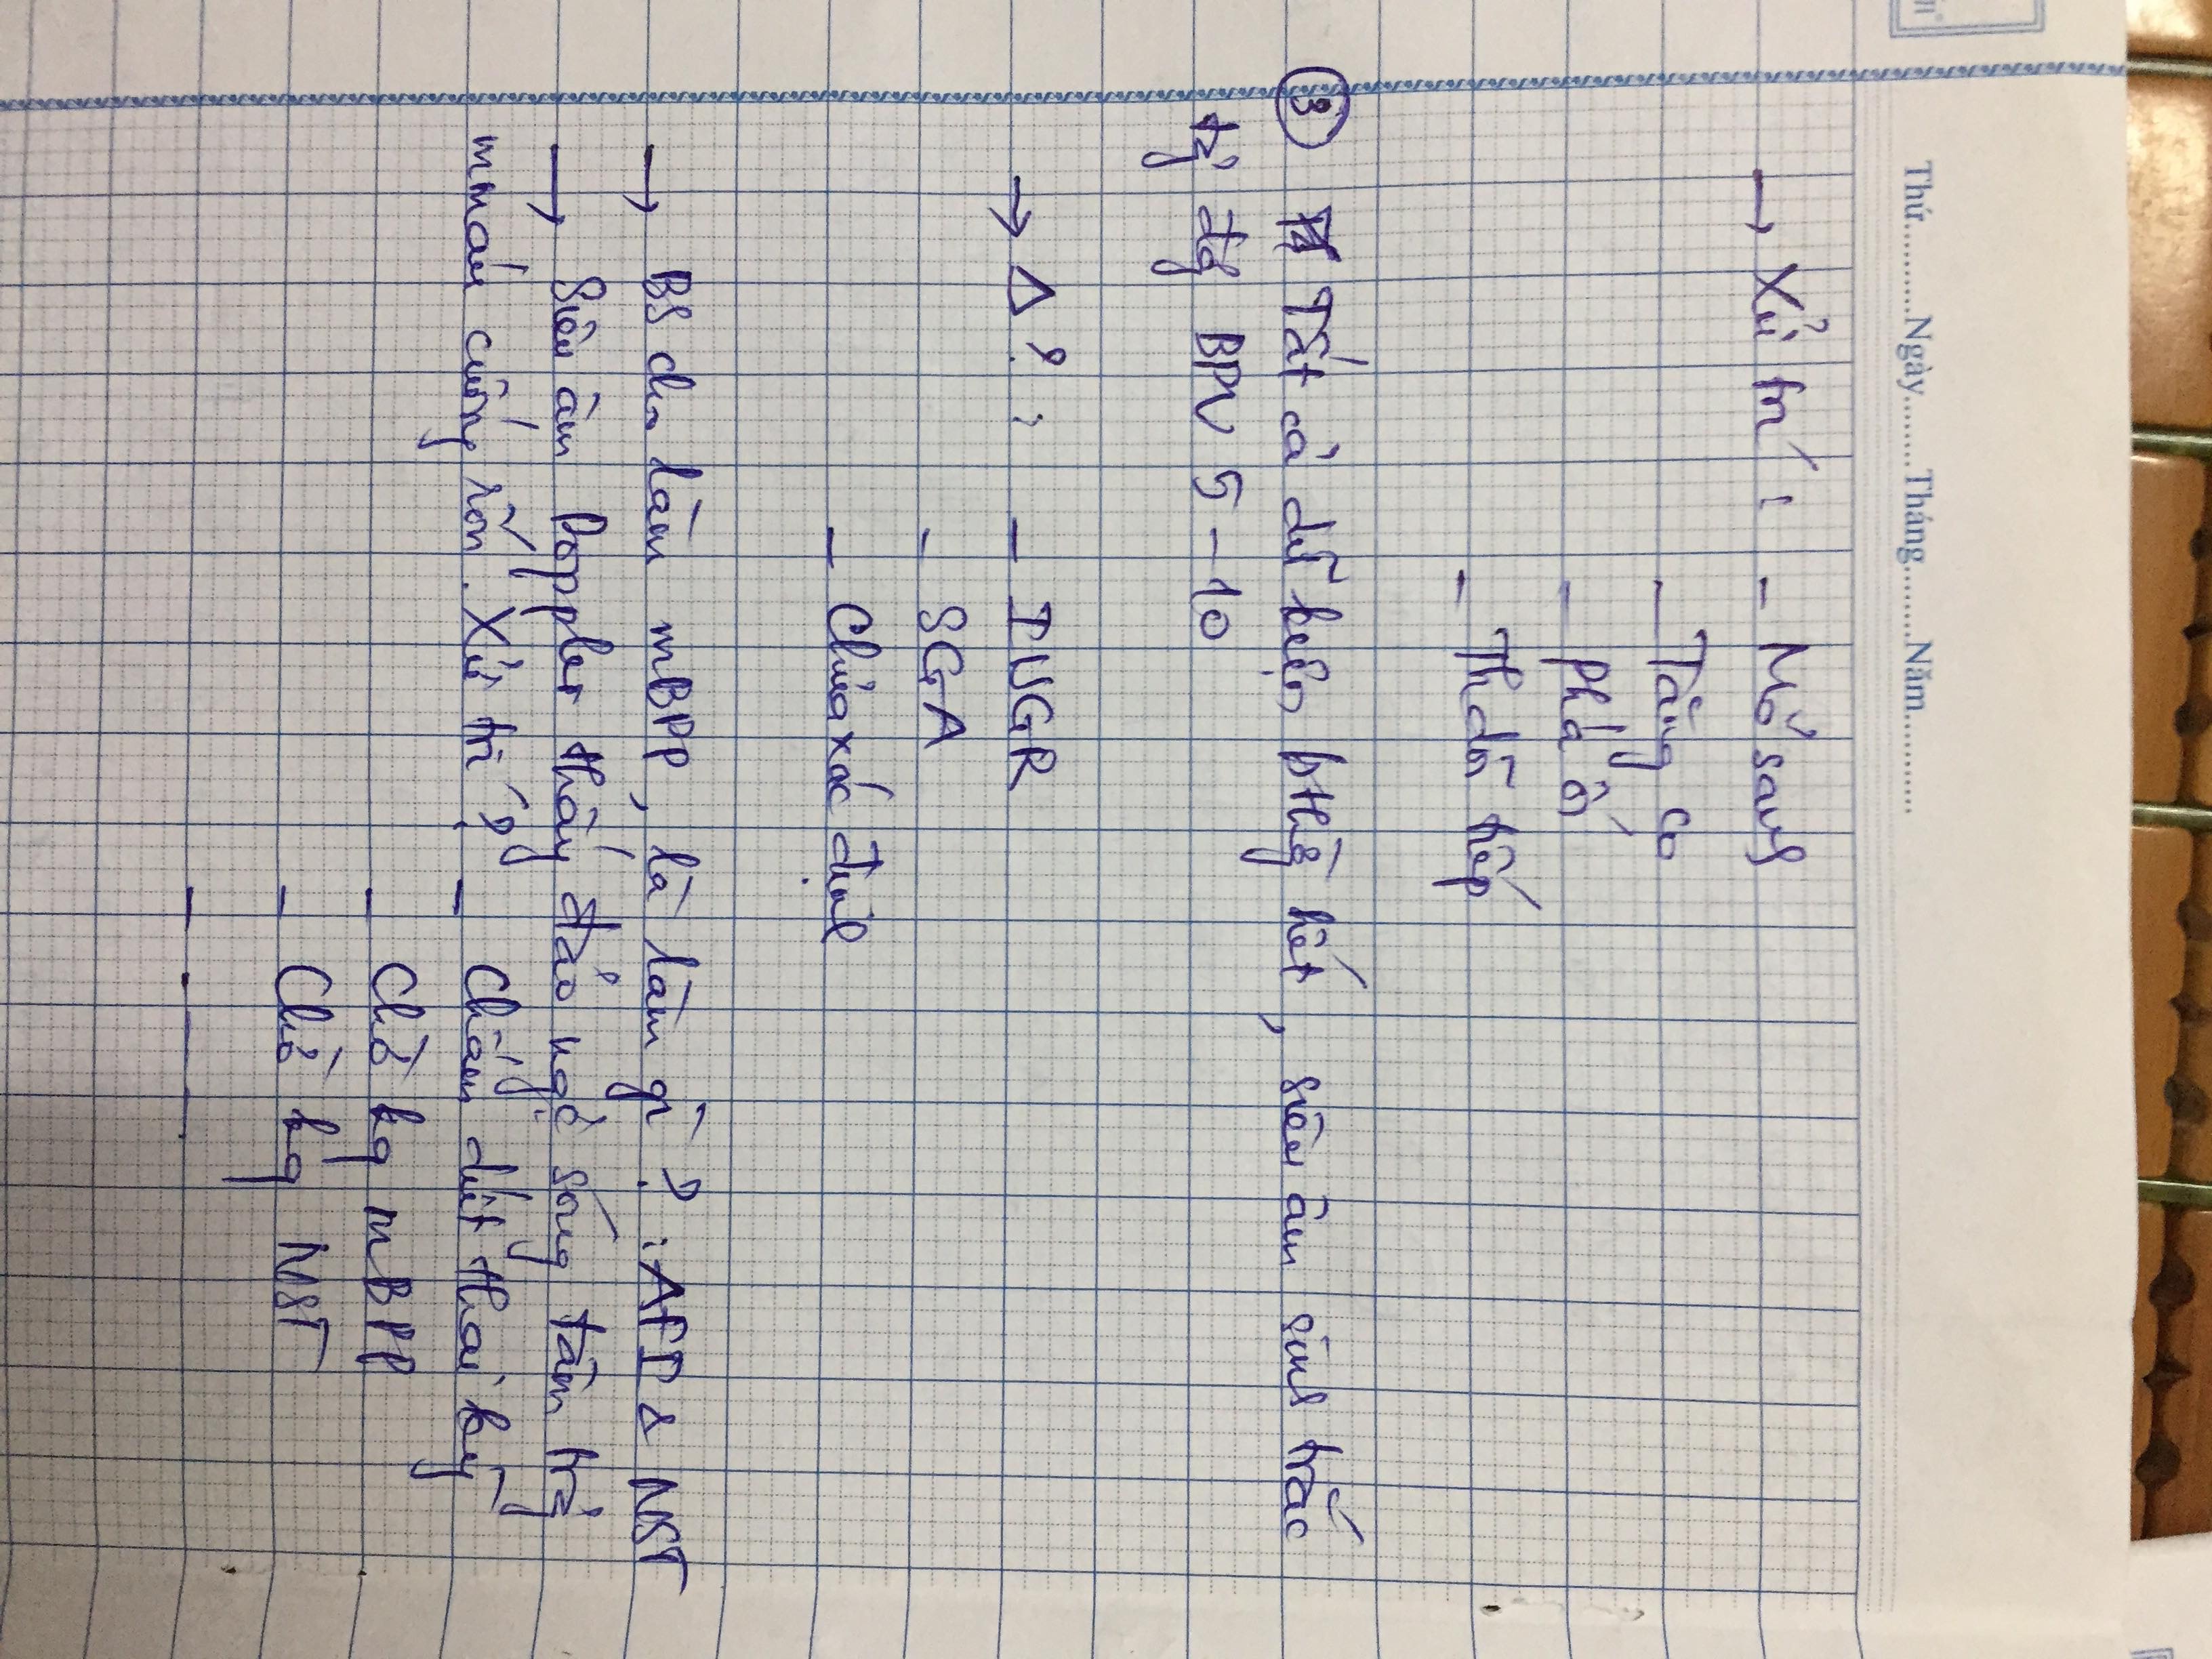 Thứ..........Ngày........Tháng........Năm...........
→ Xử trí : - Mổ sanh
- Tăng co
- Phá ối
- Th dõi tiếp
③ Tất cả dữ kiện bthg hết, siêu âm sinh trắc
tg đg BPV 5 - 10
→ Δ ? : - IUGR
- SGA
- Chưa xác định
→ BS cho làm mBPP, là làm gì ? : AFI & NST
→ Siêu âm Doppler thấy đảo ngc sóng tâm trg
mmáu cuống rốn. Xử trí ? - Chấm dứt thai kỳ
- Chờ kq mBPP
- Chờ kq NST
- . — —